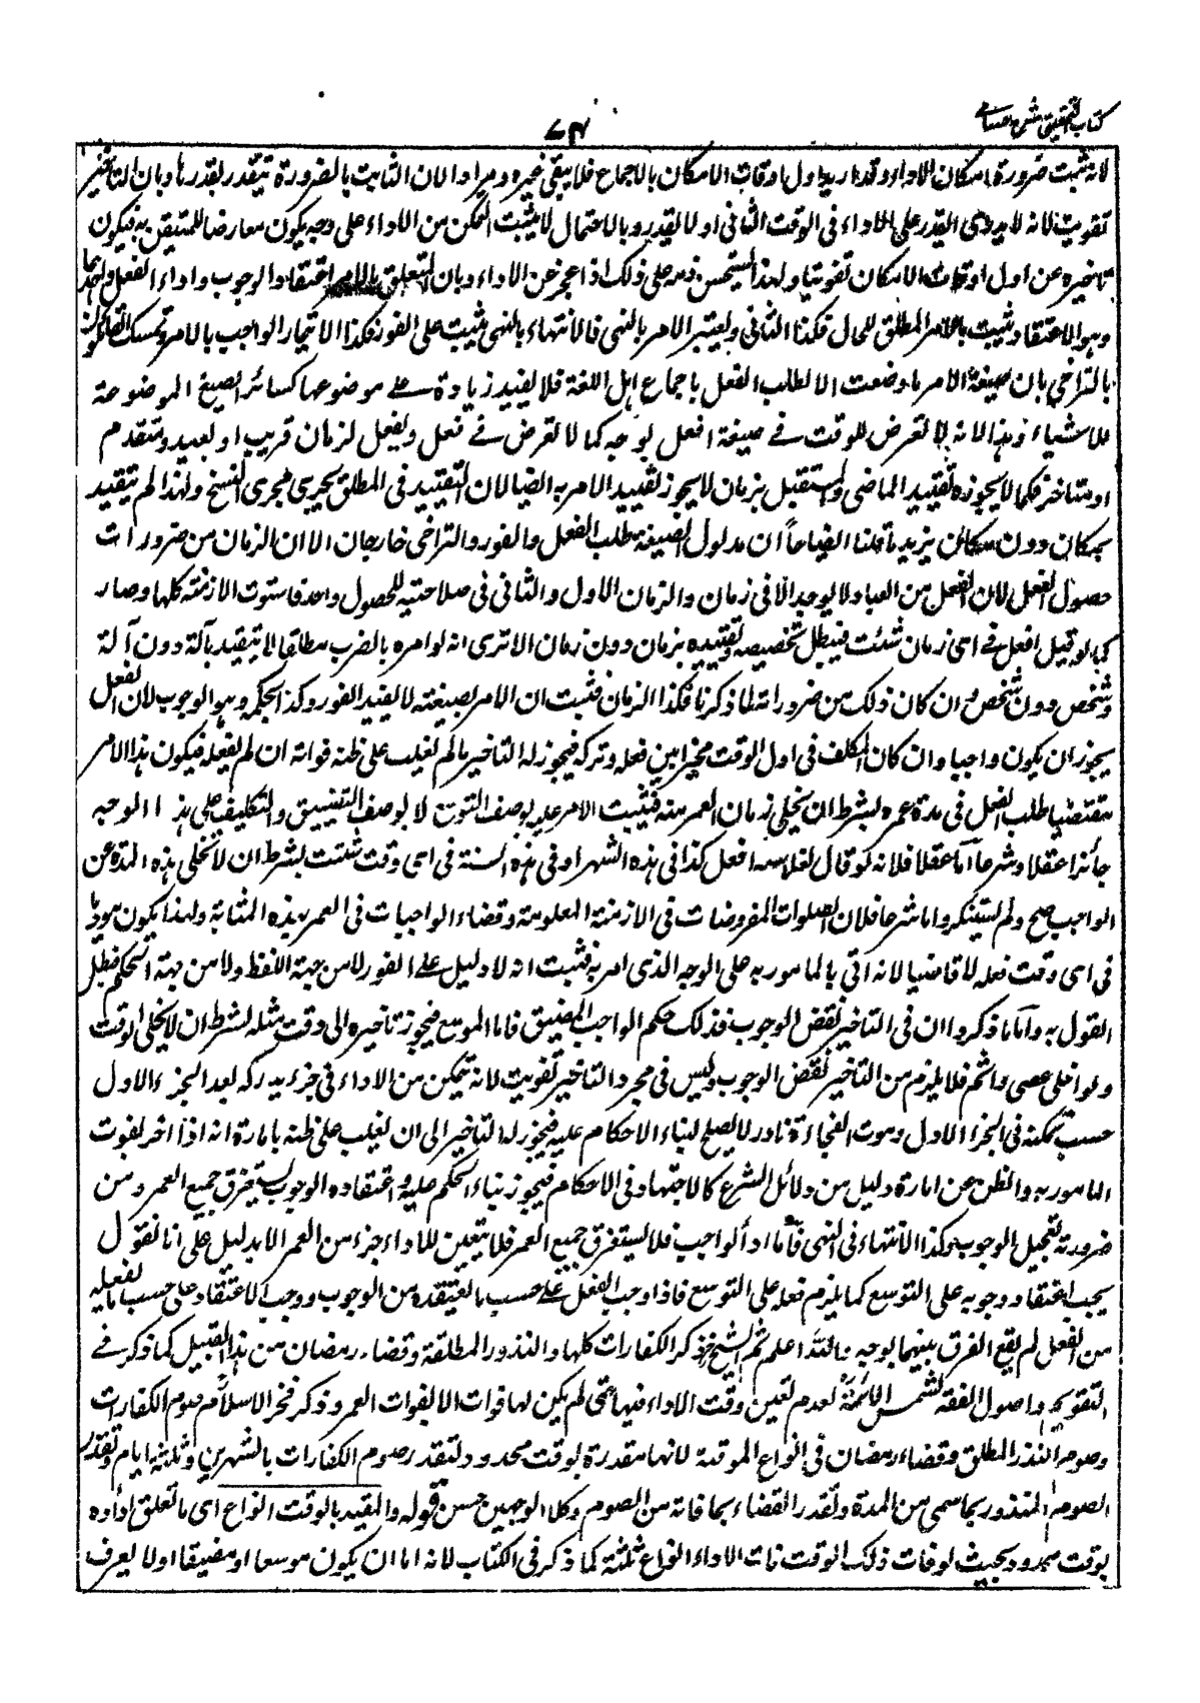 كتاب التحقيق شرح حسامي
٧٣
لانه ثبت ضرورة امكان الاداء وقد اريد اول اوقات الامكان بالاجماع فلا يبقى غيره مرادا لان الثابت بالضرورة يتقدر بقدرها وبان التاخير
تفويت لانه لا يدرى ايقدر على الاداء فى الوقت الثانى او لا يقدر وبالاحتمال لا يثبت التمكن من الاداء على وجه يكون معارضا للمتيقن به فيكون
تاخيره عن اول اوقات الامكان تفويتا ولهذا يستحسن ذمه على ذلك اذا عجز عن الاداء وبان المتعلق بالامر اعتقاد الوجوب واداء الفعل واحدهما
وهو الاعتقاد يثبت بالامر المطلق للحال فكذا الثانى ويعتبر الامر بالنهى فالانتهاء بالنهى يثبت على الفور فكذا الايتمار الواجب بالامر وتمسك القائلون
بالتراخى بان صيغة الامر ما وضعت الا لطلب الفعل باجماع اهل اللغة فلا يفيد زيادة على موضوعها كسائر الصيغ الموضوعة
للاشياء وهذا لانه لا تعرض للوقت في صيغة افعل بوجه كما لا تعرض في فعل ويفعل لزمان قريب او بعيد ومتقدم
او متاخر فكما لا يجوز تقييد الماضى والمستقبل بزمان لا يجوز تقييد الامر به ايضا لان التقييد فى المطلق يجرى مجرى النسخ ولهذا لم يتقيد
بمكان دون مكان يزيد ما قلنا ايضاحا ان مدلول الصيغة طلب الفعل والفور والتراخى خارجان الا ان الزمان من ضرورات
حصول الفعل لان الفعل من العباد لا يوجد الا فى زمان والزمان الاول والثانى فى صلاحيته للحصول واحد فاستوت الازمنة كلها وصار
كما لو قيل افعل فى اى زمان شئت فيبطل تخصيصه وتقييده بزمان دون زمان الا ترى انه لو امره بالضرب مطلقا لا يتقيد بآلة دون آلة
وشخص دون شخص وان كان ذلك من ضروراته لما ذكرنا فكذا الزمان فثبت ان الامر بصيغته لا يفيد الفور وكذا لحكمه وهو الوجوب لان الفعل
يجوز ان يكون واجبا وان كان المكلف فى اول الوقت مخيرا بين فعله وتركه فيجوز له التاخير ما لم يغلب على ظنه فواته ان لم يفعله فيكون هذا الامر
مقتضيا طلب الفعل فى مدة عمره بشرط ان لا يخلى زمان العمر منه فيثبت الامر عليه بوصف التوسع لا بوصف التضييق والتكليف على هذا الوجه
جائز عقلا وشرعا اما عقلا فلانه لو قال لغلامه افعل كذا فى هذه الشهر او فى هذه السنة فى اى وقت شئت بشرط ان لا تخلى هذه المدة عن
الواجب صح ولم يستنكر واما شرعا فلان الصلوات المفروضات فى الازمنة المعلومة وقضاء الواجبات فى العمر بهذه المثابة ولهذا يكون موديا
فى اى وقت فعله لا قاضيا لانه اتى بالمامور به على الوجه الذى امر به فثبت انه لا دليل على الفور لا من جهة اللفظ ولا من جهة الحكم فبطل
القول به واما ما ذكروا ان فى التاخير نقض الوجوب فذلك حكم الواجب المضيق فاما الموسع فيجوز تاخيره الى وقت مثله بشرط ان لا يخلى الوقت
ولو اخلى عصى واثم فلا يلزم من التاخير نقض الوجوب وليس فى مجرد التاخير تفويت لانه يتمكن من الاداء فى جزء يدركه بعد الجزء الاول
حسب تمكنه فى الجزء الاول وموت الفجاءة نادر لا يصلح لبناء الاحكام عليه فيجوز له التاخير الى ان يغلب على ظنه بامارة انه اذا اخر يفوت
المامور به والظن عن امارة دليل من دلائل الشرع كالاجتهاد فى الاحكام فيجوز بناء الحكم عليه واعتقاده الوجوب يستغرق جميع العمر ومن
ضرورته تعجيل الوجوب وكذا الانتهاء فى النهى فاما اداء الواجب فلا يستغرق جميع العمر فلا يتعين للاداء جزء من العمر الا بدليل على انا نقول
يجب اعتقاد وجوبه على التوسع كما يلزم فعله على التوسع فاذا وجب الفعل على حسب ما يعتقده من الوجوب ووجب الاعتقاد على حسب ما يفعله
من الفعل لم يقع الفرق بينهما بوجه والله اعلم ثم الشيخ ذكر الكفارات كلها والنذور المطلقة وقضاء رمضان من هذا القبيل كما ذكر في
التقويم واصول الفقه لشمس الائمة لعدم تعين وقت الاداء فيها حتى لم يكن لها فوات الا بفوات العمر وذكر فخر الاسلام صوم الكفارات
وصوم النذر المطلق وقضاء رمضان فى انواع الموقتة لانها مقدرة بوقت محدود لتقدر صوم الكفارات بالشهرين وثلثة ايام وتقدر
الصوم المنذور بما سمى من المدة وتقدر القضاء بما فاته من الصوم وكلا الوجهين حسن قوله والمقيد بالوقت انواع اى ما تعلق اداؤه
بوقت محدود بحيث لو فات ذلك الوقت فات الاداء انواع ثلثة كما ذكر فى الكتاب لانه اما ان يكون موسعا او مضيقا او لا يعرف